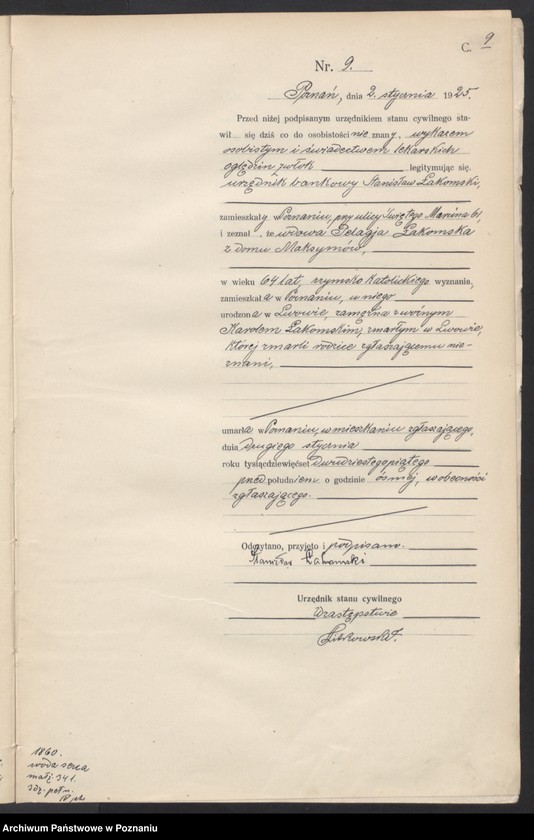 C. 9
Nr. 9.
Poznań, dnia 2. stycznia 1925.
Przed niżej podpisanym urzędnikiem stanu cywilnego sta-
wił się dziś co do osobistości nie znany, wykazem
osobistym i świadectwem lekarskich
oględzin zwłok legitymując się.
urzędnik bankowy Stanisław Łakomski,
zamieszkały w Poznaniu, przy ulicy Święty Marcina 61,
i zeznał, że wdowa Pelagja Łakomska
z domu Maksymów,
w wieku 64 lat, rzymsko katolickiego wyznania,
zamieszkała w Poznaniu, u niego
urodzona w Lwowie, zamężna z woźnym
Karolem Łakomskim, zmarłym w Lwowie,
której zmarli rodzice zgłaszającemu nie-
znani,
umarła w Poznaniu, w mieszkaniu zgłaszającego,
dnia drugiego stycznia
roku tysiącdziewięćset dwudziestegopiątego
przed południem o godzinie ósmej, w obecności
zgłaszającego.
Odczytano, przyjęto i podpisano.
Stanisław Łakomski
Urzędnik stanu cywilnego
W zastępstwie
1860.
wada serca
małż. 341.
Archiwum Państwowe w Poznaniu